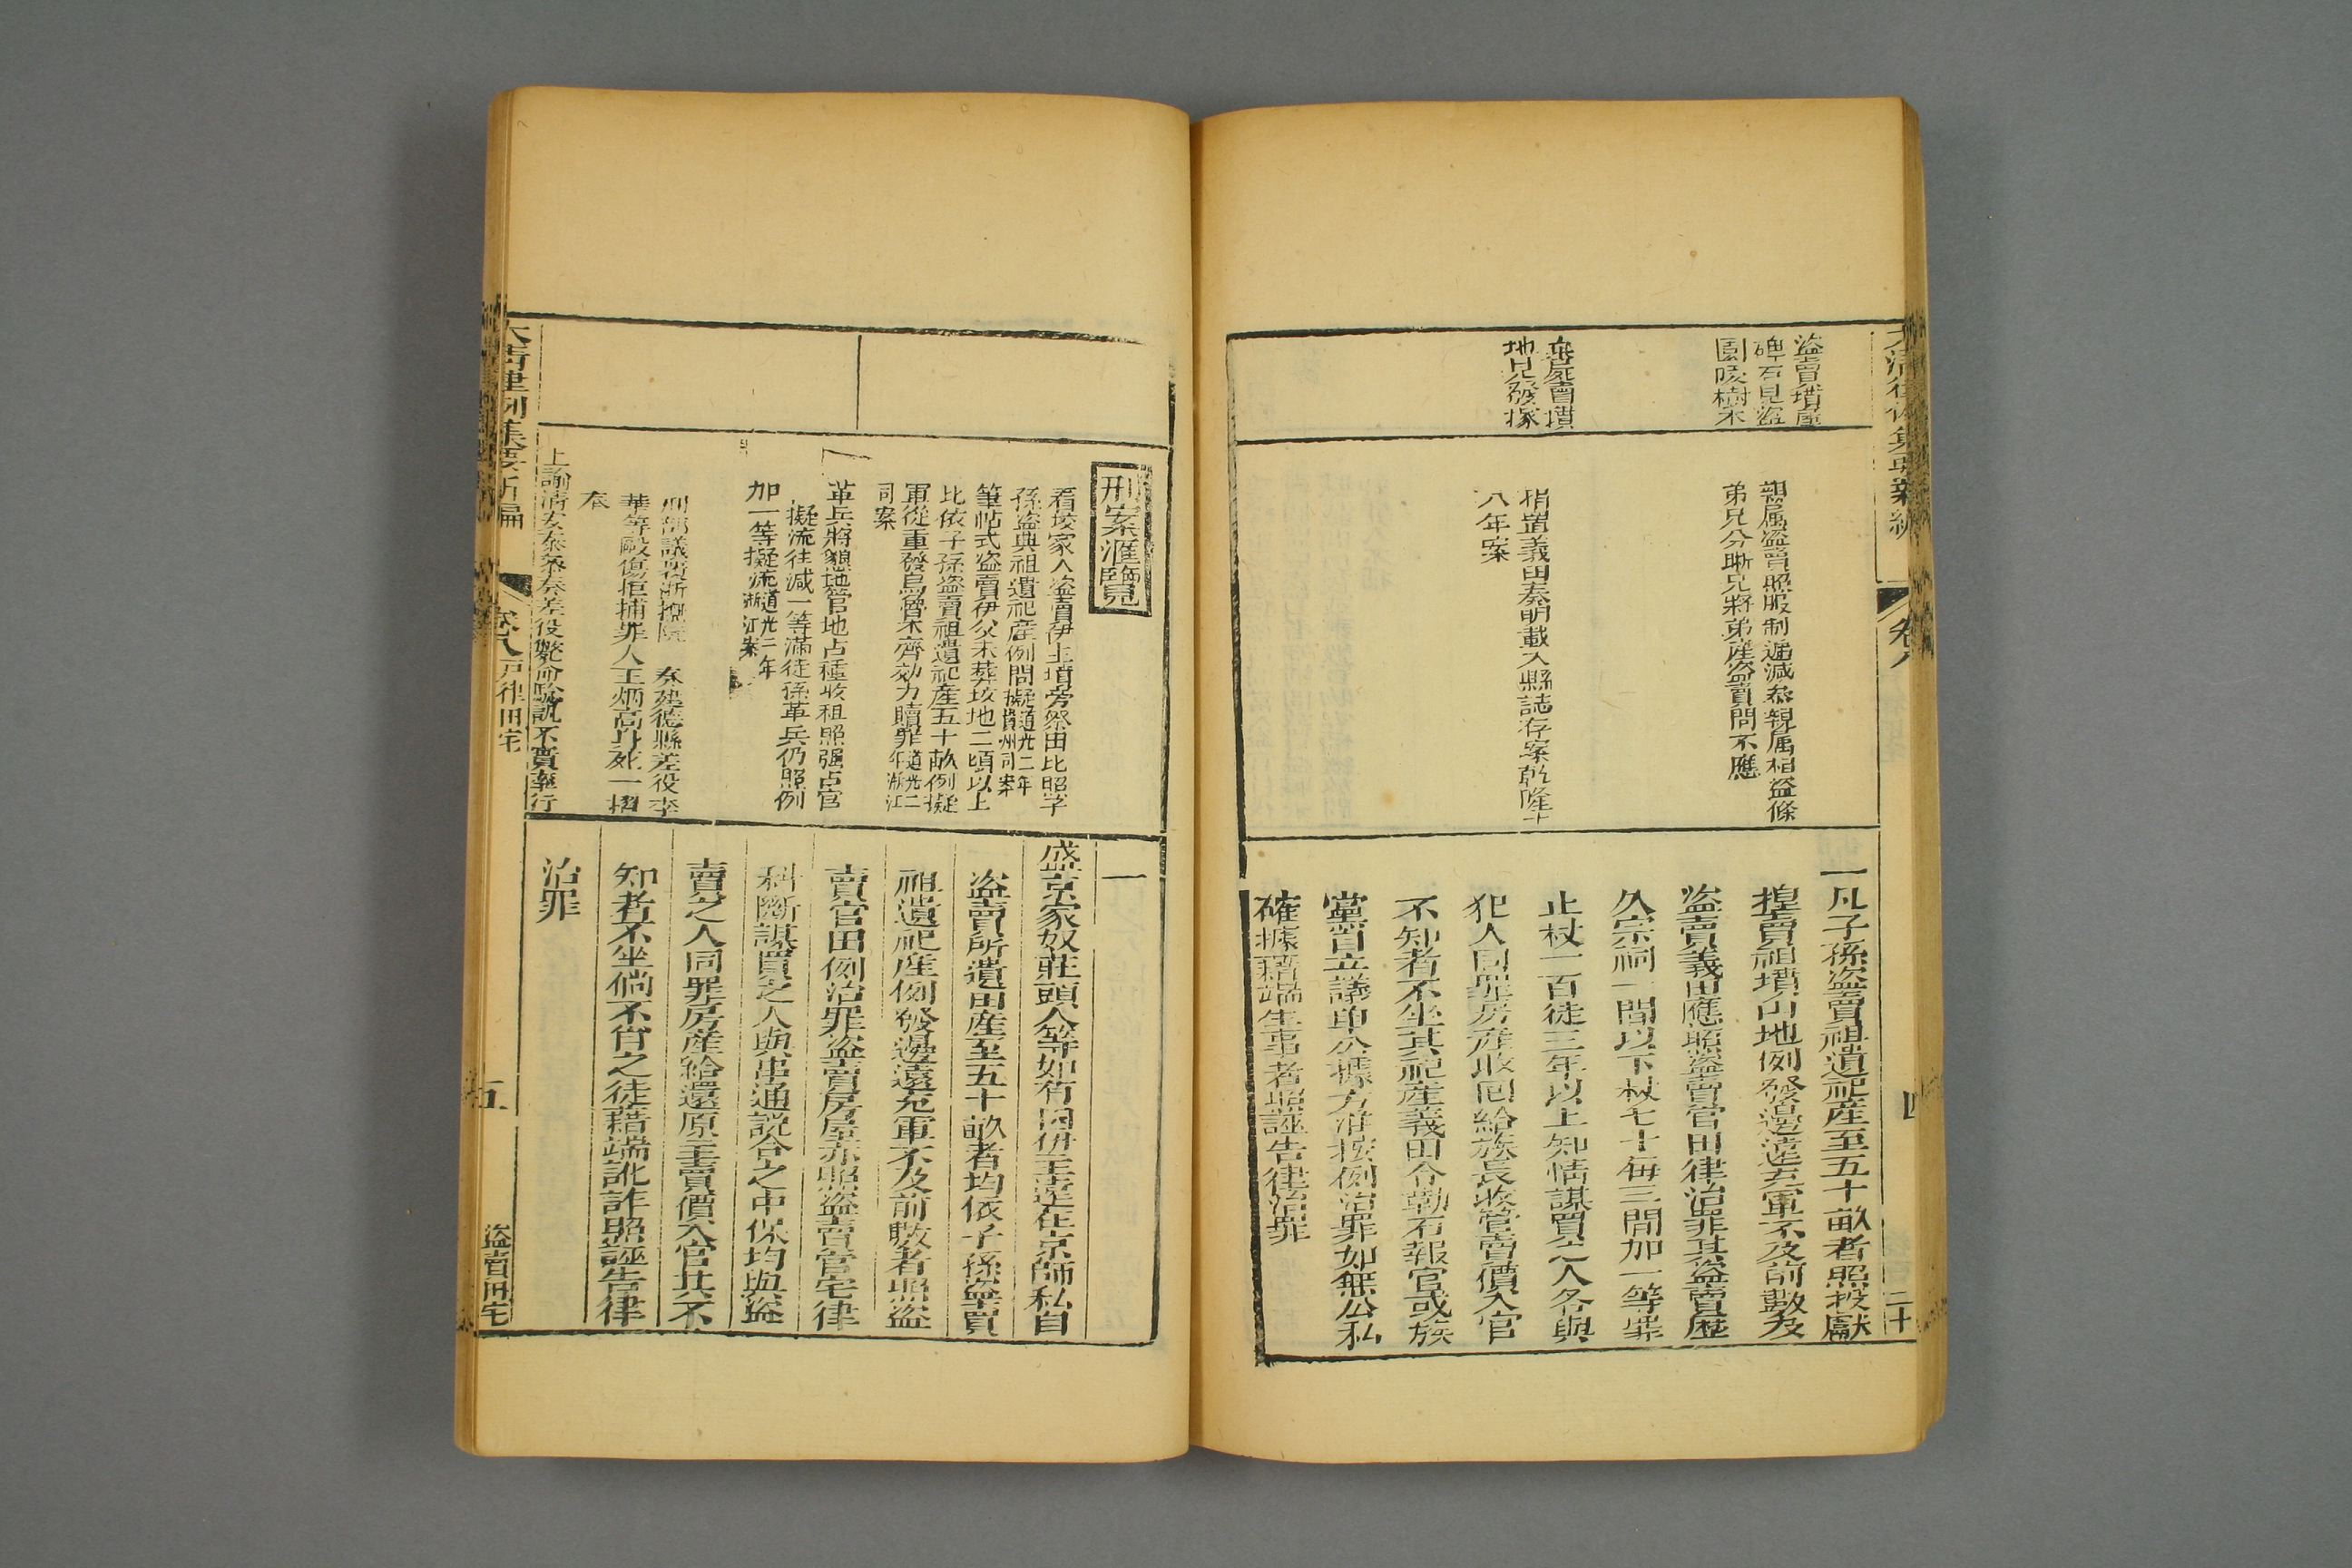 卷八
四
二十
盜賣墳塋
碑石見盜
園陵樹木
棄屍賣墳
地見發塚
親屬盜賣照服制遞減叅親屬相盜條
弟兄分晰兄將弟產盜賣問不應
捐置義田奏明載入縣誌存案乾隆十
八年案
一凡子孫盜賣祖遺祀產至五十畝者照投獻
捏賣祖墳山地例發邊遠充軍不及前數及
盜賣義田應照盜賣官田律治罪其盜賣歷
久宗祠一間以下杖七十每三間加一等罪
止杖一百徒三年以上知情謀買之人各與
犯人同罪房產收回給族長收管賣價入官
不知者不坐其祀產義田令勒石報官或族
黨自立議單公據方准按例治罪如無公私
確據藉端生事者照誣告律治罪
刑案滙覽
看坟家人盜賣伊主墳旁祭田比照子
孫盜典祖遺祀產例問擬道光二年貴州司案
筆帖式盜賣伊父未葬坟地二頃以上
比依子孫盜賣祖遺祀產五十畝例擬
軍從重發烏魯木齊効力贖罪道光二年浙江
司案
革兵將懇地營地占種收租照强占官
擬流徃減一等滿徒係革兵仍照例
加一等擬流道光二年浙江案
刑部議覆浙撫院 奏建德縣差役李
華等毆傷拒捕罪人王炳高身死一摺
奉
上諭清安泰奏差役斃命
一
盛京家奴莊頭人等如有因伊主遠在京師私自
盜賣所遺田產至五十畝者均依子孫盜賣
祖遺祀產例發邊遠充軍不及前數者照盜
賣官田例治罪盜賣房屋亦照盜賣官宅律
科斷謀買之人與串通說合之中保均與盜
賣之人同罪房產給還原主賣價入官其不
知者不坐倘不肖之徒藉端訛詐照誣告律
治罪
大清律例集要新編
卷八戶律田宅
五
盜賣田宅